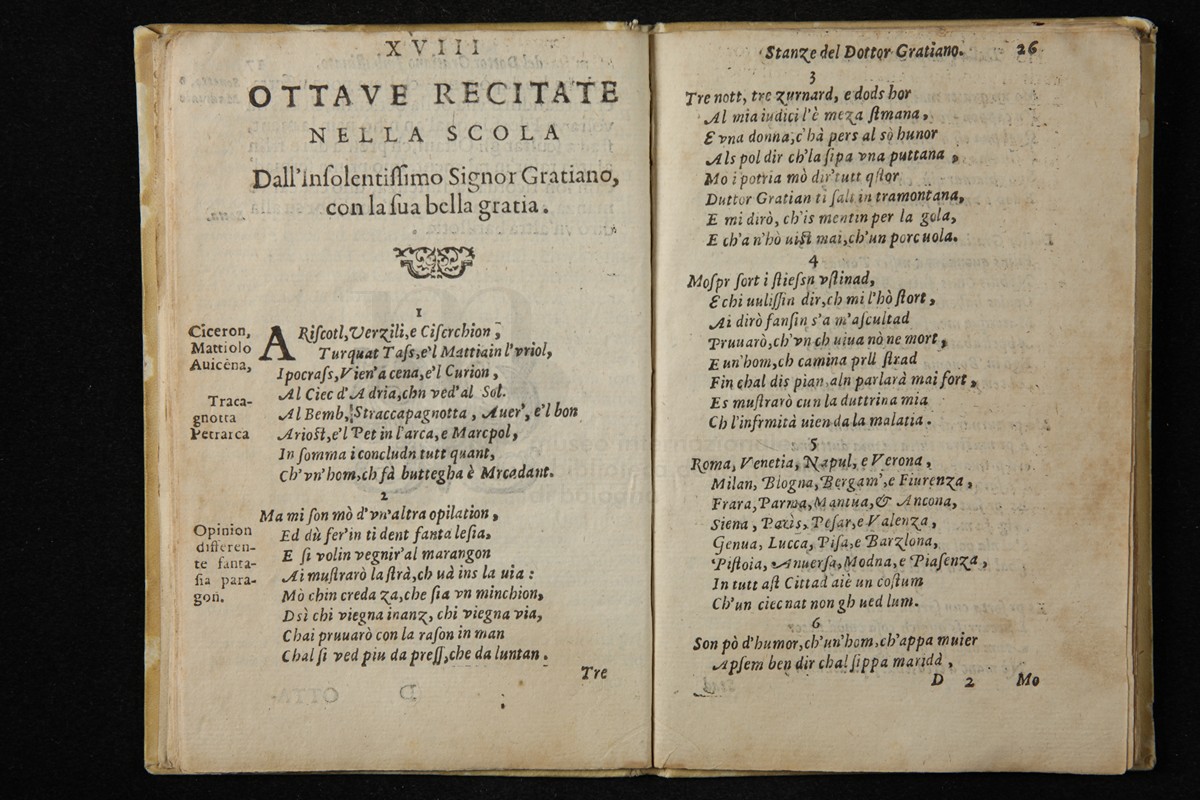 XVIII
OTTAVE RECITATE
NELLA SCOLA
Dall'insolentissimo Signor Gratiano,
con la sua bella gratia.
1
Ciceron,
Mattiolo
Auicēna,
Traca-
gnotta
Petrarca
ARiscotl, Verzili, e Ciserchion,
Turquat Tass, e'l Mattiain l'vriol,
Ipocrass, Vien'a cena, e'l Curion,
Al Ciec d'Adria, chn ved'al Sol.
Al Bemb, Straccapagnotta, Auer', e'l bon
Ariost, e'l Pet in l'arca, e Marcpol,
In somma i concludn tutt quant,
Ch'vn'hom, ch fà buttegha è Mrcadant.
2
Opinion
differen-
te fanta-
sia para-
gon.
Ma mi son mò d'vn'altra opilation,
Ed dù fer'in ti dent fanta lesia,
E si volin vegnir'al marangon
Ai mustrarò la strà, ch uà ins la uia:
Mò chin creda za, che sia vn minchion,
Dsì chi viegna inanz, chi viegna via,
Chai pruuarò con la rason in man
Chal si ved piu da press, che da luntan.
Tre
Stanze del Dottor Gratiano. 26
3
Tre nott, tre zurnard, e dods hor
Al mia iudici l'è meza stmana,
E vna donna, c'hà pers al sò hunor
Als pol dir ch'la sipa vna puttana,
Mo i potria mò dir'tutt qstor
Duttor Gratian ti salt in tramontana,
E mi dirò, ch'is mentin per la gola,
E ch'a n'hò uist mai, ch'un porc uola.
4
Mospr sort i stiessn vstinad,
E chi uulissin dir, ch mi l'hò stort,
Ai dirò fansin s'a m'ascultad
Pruuarò, ch'vn ch uiua nò ne mort,
E un'hom, ch camina prll strad
Fin chal dis pian, aln parlarà mai fort,
Es mustrarò cun la duttrina mia
Ch l'infrmità uien da la malatia.
5
Roma, Venetia, Napul, e Verona,
Milan, Blogna, Bergam', e Fiurenza,
Frara, Parma, Mantua, & Ancona,
Siena, Paris, Pesar, e Valenza,
Genua, Lucca, Pisa, e Barzlona,
Pistoia, Anuersa, Modna, e Piasenza,
In tutt ast Cittad aiè un costum
Ch'un ciec nat non gh ued lum.
6
Son pò d'humor, ch'un'hom, ch'appa muier
Apsem ben dir chal sippa maridà,
D 2 Mo